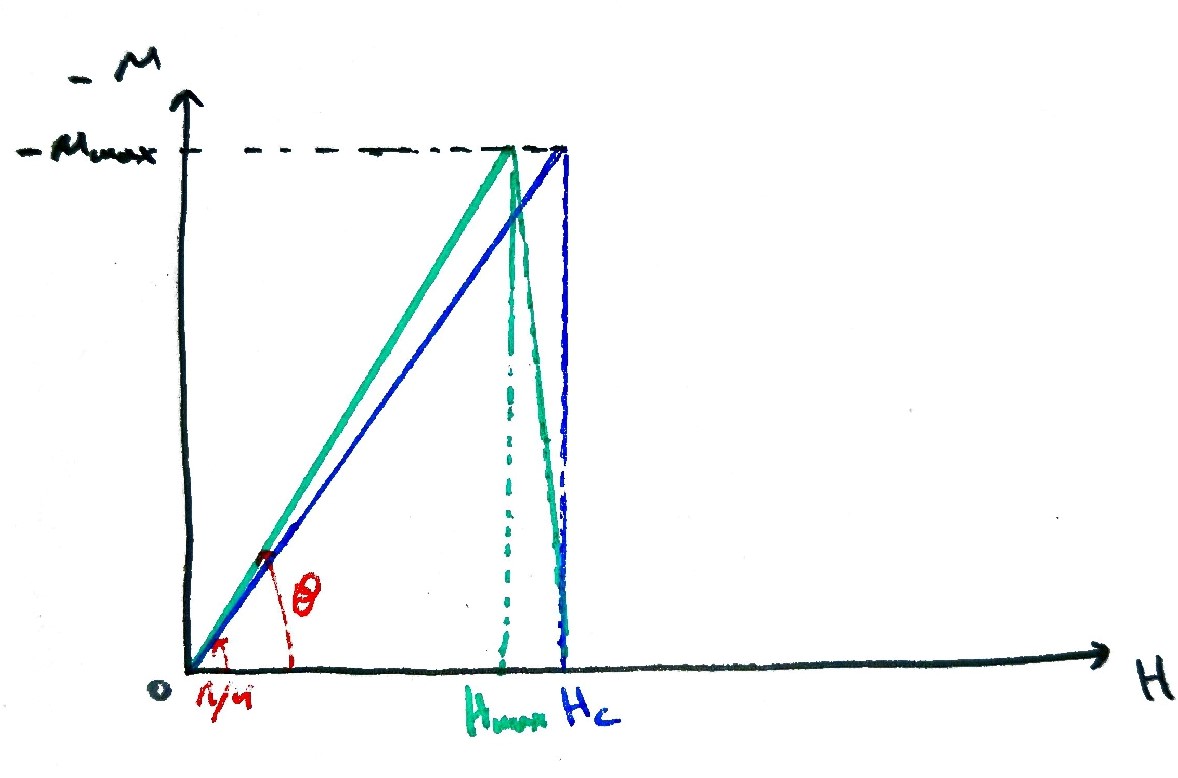 - M
- Mmax
θ
O
π/4
Hmax
Hc
H